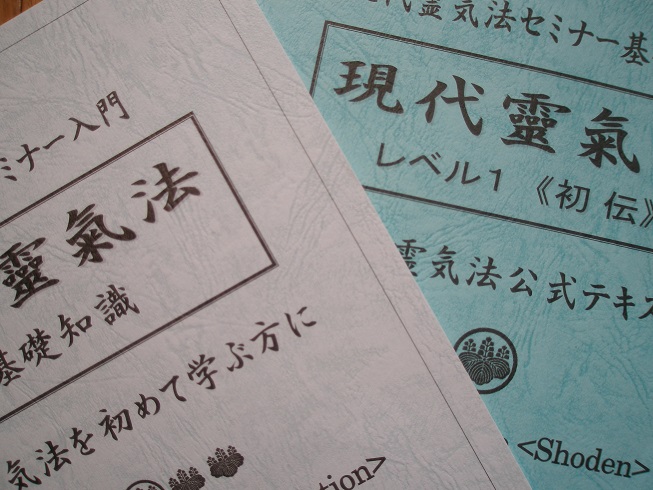 ミナー入門
靈氣法
基礎知識
気法を初めて学ぶ方に
tion>
代霊気法セミナー基
現代靈氣
レベル1 《初伝》
霊気法公式テキス
<Shoden>